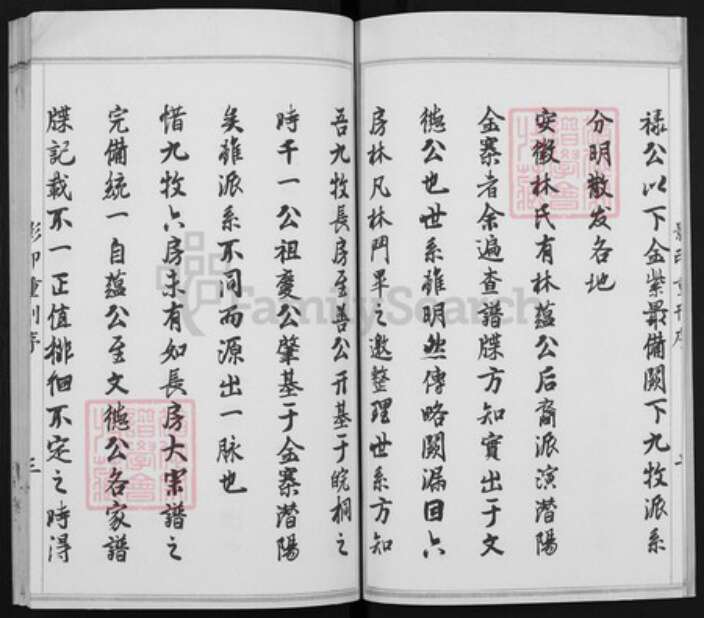 禄公以下金紫最備闕下九牧派系
分明散发各地
安徽林氏有林蕴公后裔派演潜陽
金寨者余遍查譜牒方知實出于文
德公也世系雖明然傳略闕漏因六
房林凡林門早之邀整理世系方知
吾九牧長房至善公开基于皖桐之
時千一公祖慶公肇基于金寨潜陽
矣雖派系不同而源出一脉也
惜九牧六房未有如長房大宗譜之
完備統一自蕴公至文德公各家譜
牒記載不一正值徘徊不定之時得
影印重刊序
三
FamilySearch